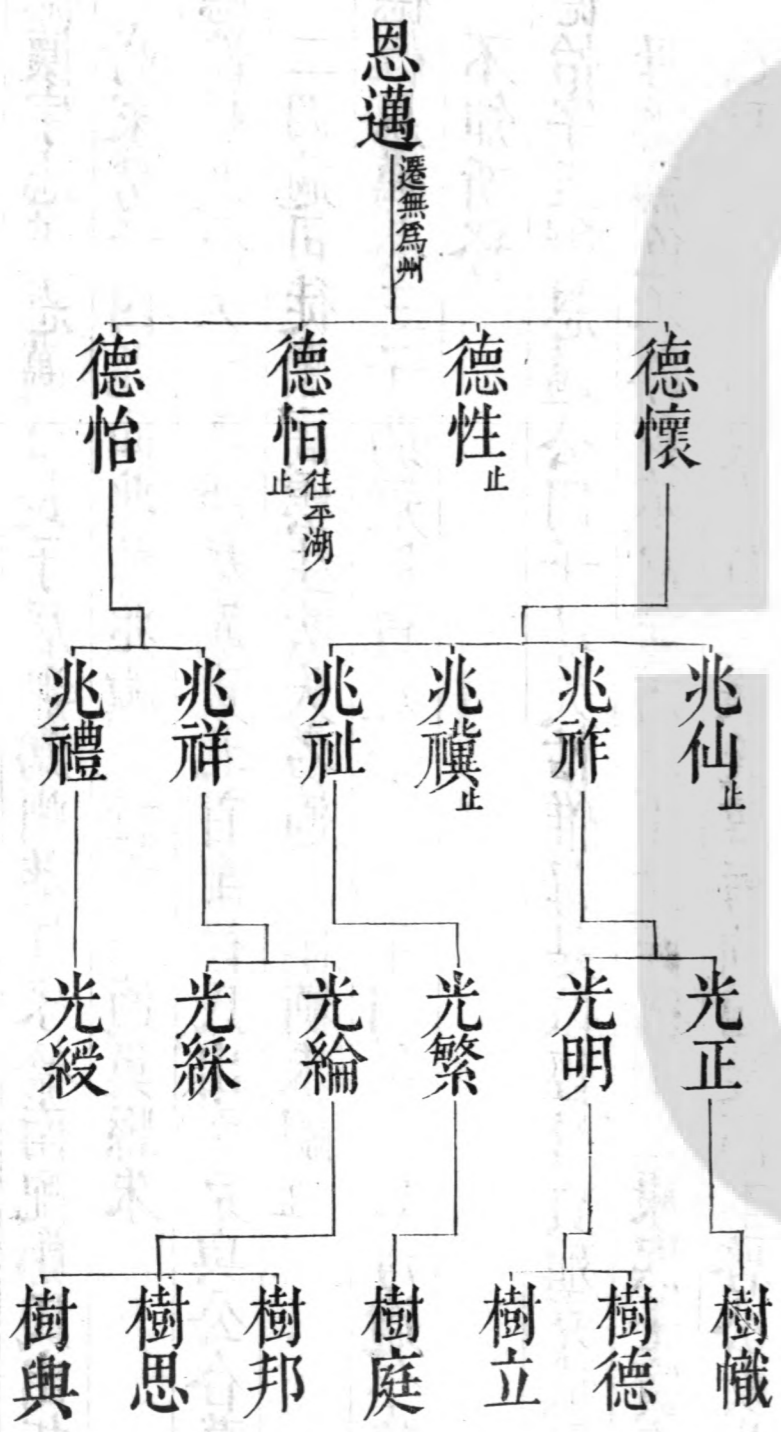 恩邁
遷無爲州
德懷
德性
止
德恒
往平湖
止
德怡
兆仙
止
兆祚
兆禥
止
兆祉
兆祥
兆禮
光正
光明
光繁
光綸
光綵
光綬
樹幟
樹德
樹立
樹庭
樹邦
樹思
樹興